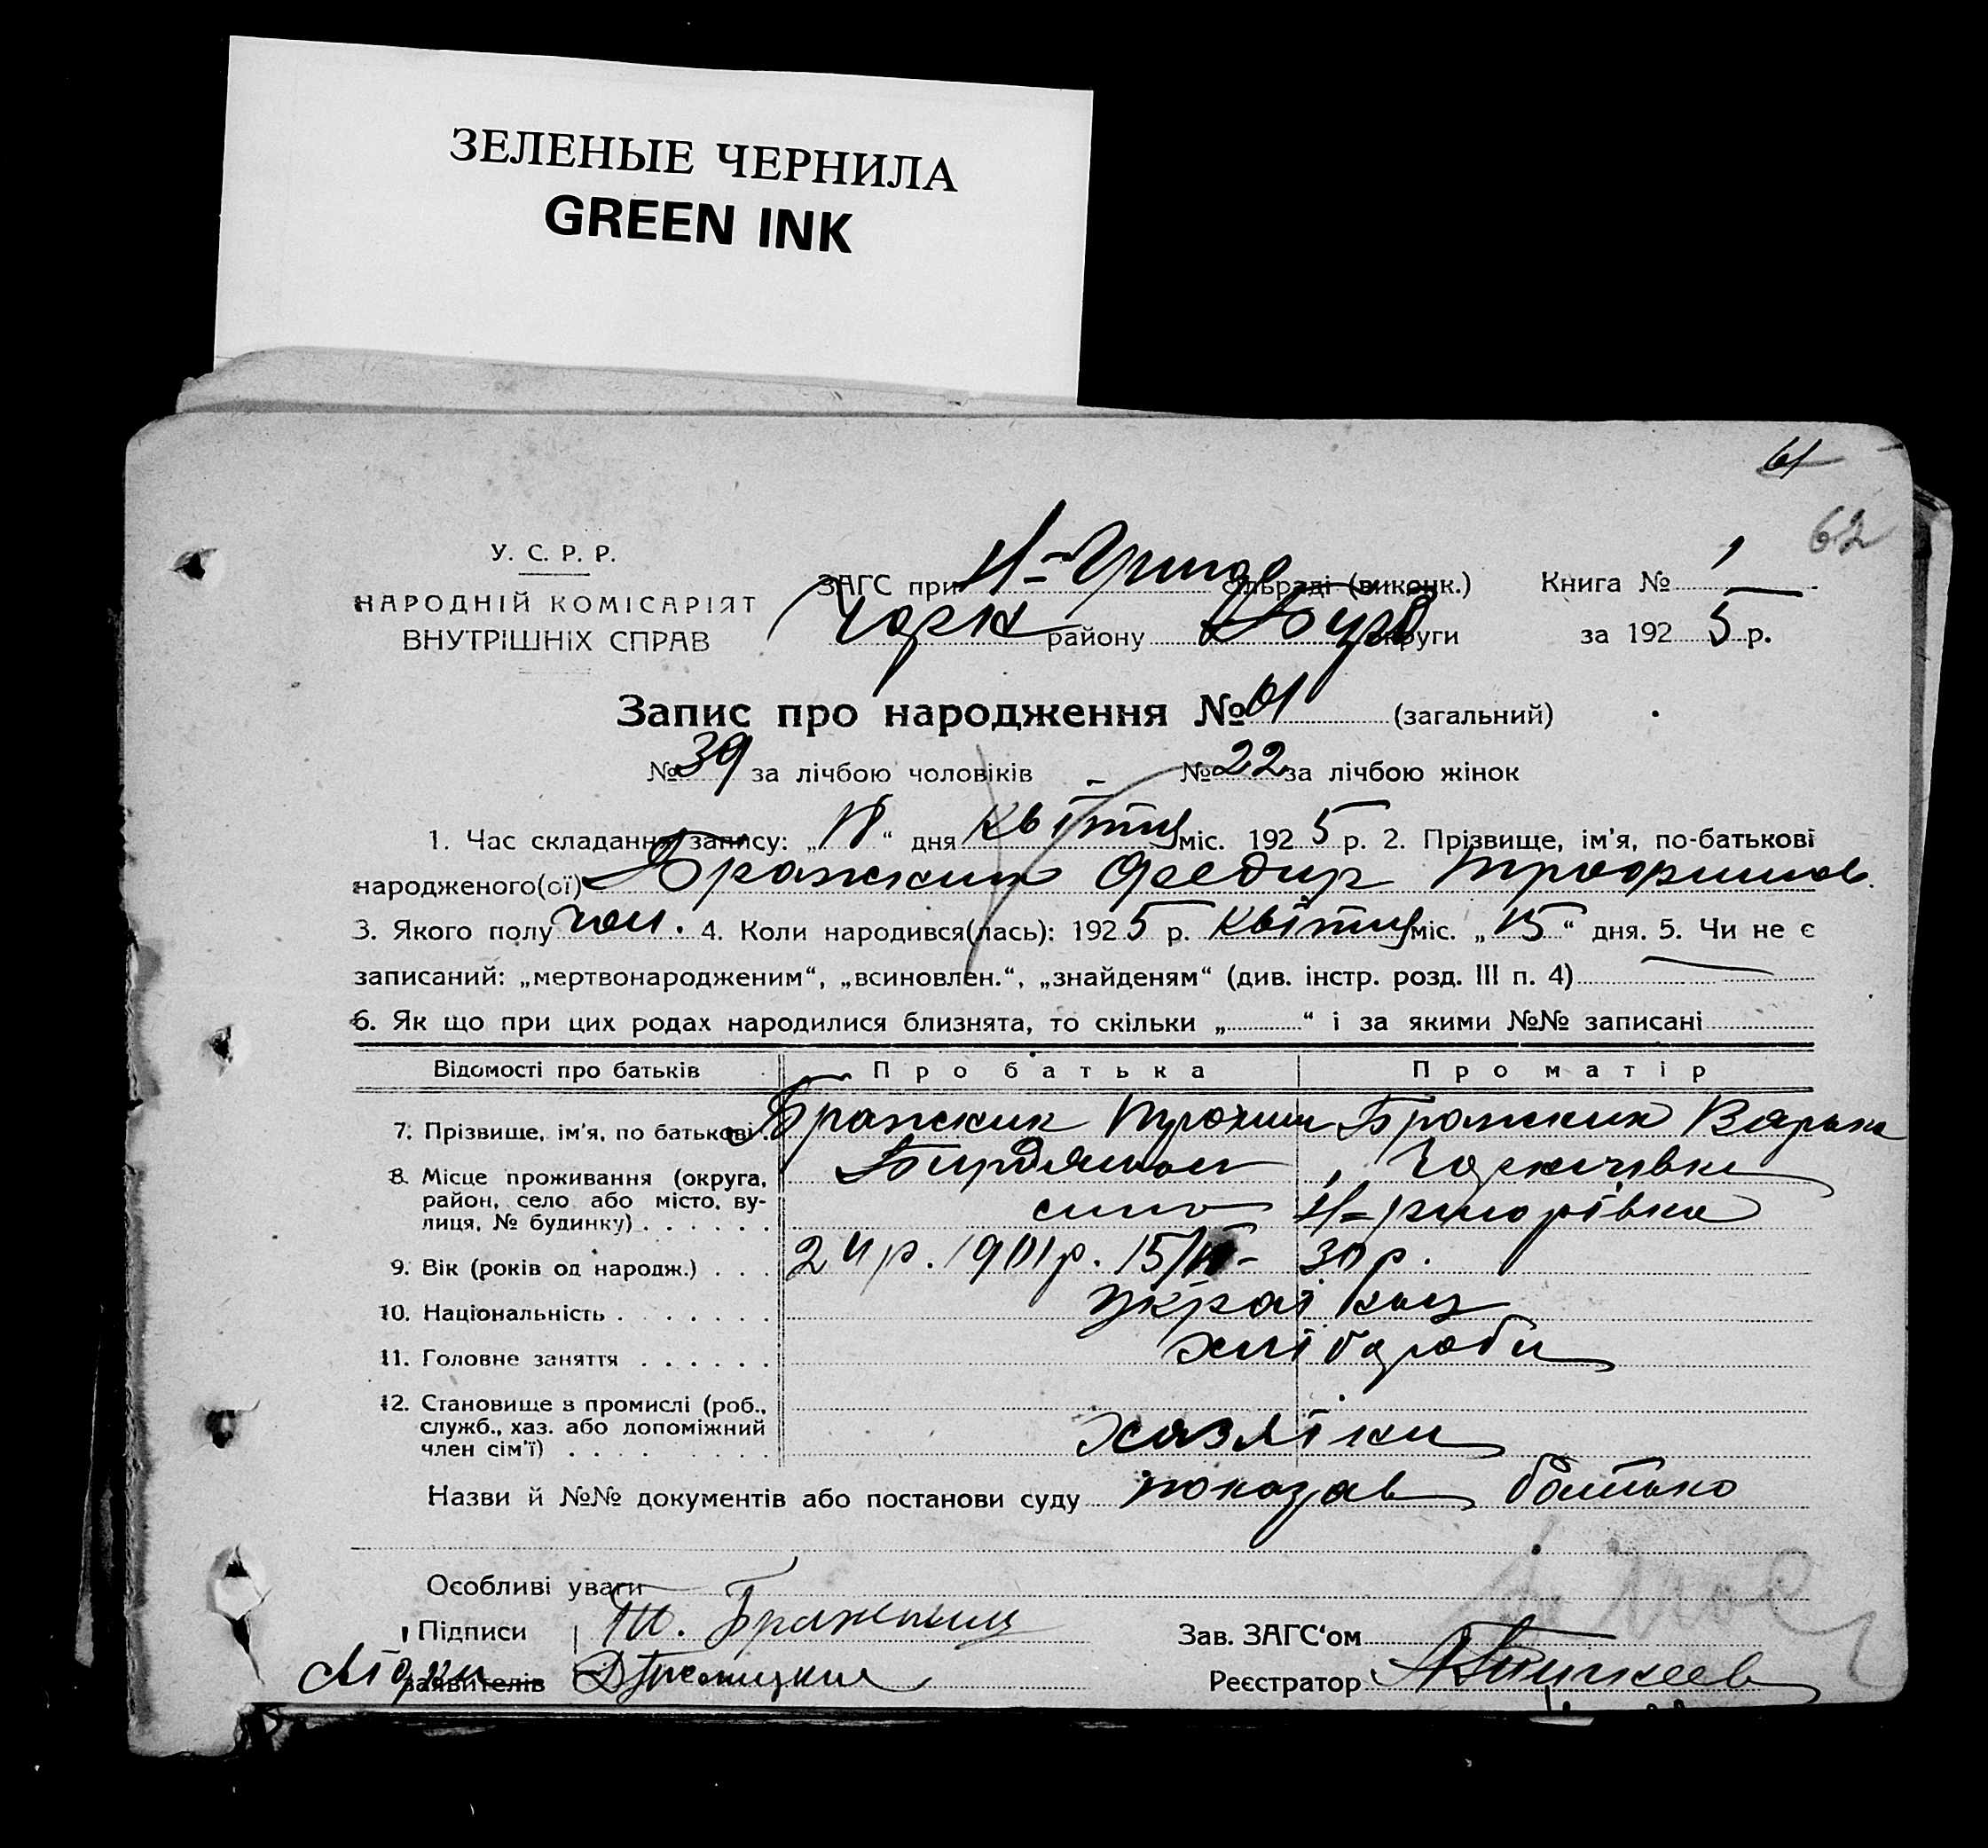 ЗЕЛЕНЫЕ ЧЕРНИЛА
GREEN INK
61
62
У. С. Р. Р.
НАРОДНІЙ КОМІСАРІЯТ
ВНУТРІШНІХ СПРАВ
ЗАГС при Н-Григор сільраді (виконк.) Книга № 1
району округи за 1925 р.
Запис про народження № 61 (загальний)
№ 39 за лічбою чоловіків № 22 за лічбою жінок
1. Час складання запису: „18“ дня квітня міс. 1925 р. 2. Прізвище, ім'я, по-батькові
народженого(ої) Бражник Федир Трофимов
3. Якого полу чол. 4. Коли народився(лась): 1925 р. квітня міс. „15“ дня. 5. Чи не є
записаний: „мертвонародженим“, „всиновлен.“, „знайденям“ (див. інстр. розд. III п. 4)
6. Як що при цих родах народилися близнята, то скільки „ “ і за якими №№ записані
Відомості про батьків Про батька Про матір
7. Прізвище, ім'я, по батькові Бражник Трохим Бражник Варька
8. Місце проживання (округа,
район, село або місто, ву-
лиця, № будинку) село Н-Григорівка
9. Вік (років од народж.) 24 р. 1901 р. 30 р.
10. Національність Україньці
11. Головне заняття хлібороби
12. Становище в промислі (роб.,
служб., хаз. або допоміжний
член сім'ї) хазяїни
Назви й №№ документів або постанови суду показав батько
Особливі уваги
Підписи Т. Бражник
заявителів
Зав. ЗАГС'ом
Реєстратор